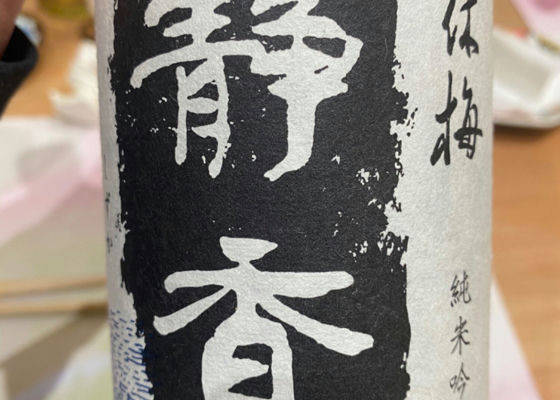 保梅
純米吟
静香